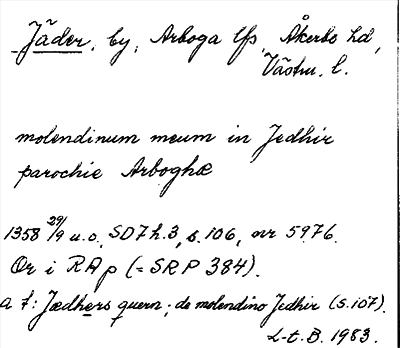 Jäder, by, Arboga lfs, Åkerbo hd,
Västm. l.
molendinum meum in Jedhir
parochie Arboghæ
1358 29/9 u.o. SD 7 h.3, s.106, nr 5976.
Or i RAp (= SRP 384).
a t: Jædhers quern; de molendino Jedhir (s.107).
L-t.B. 1983.